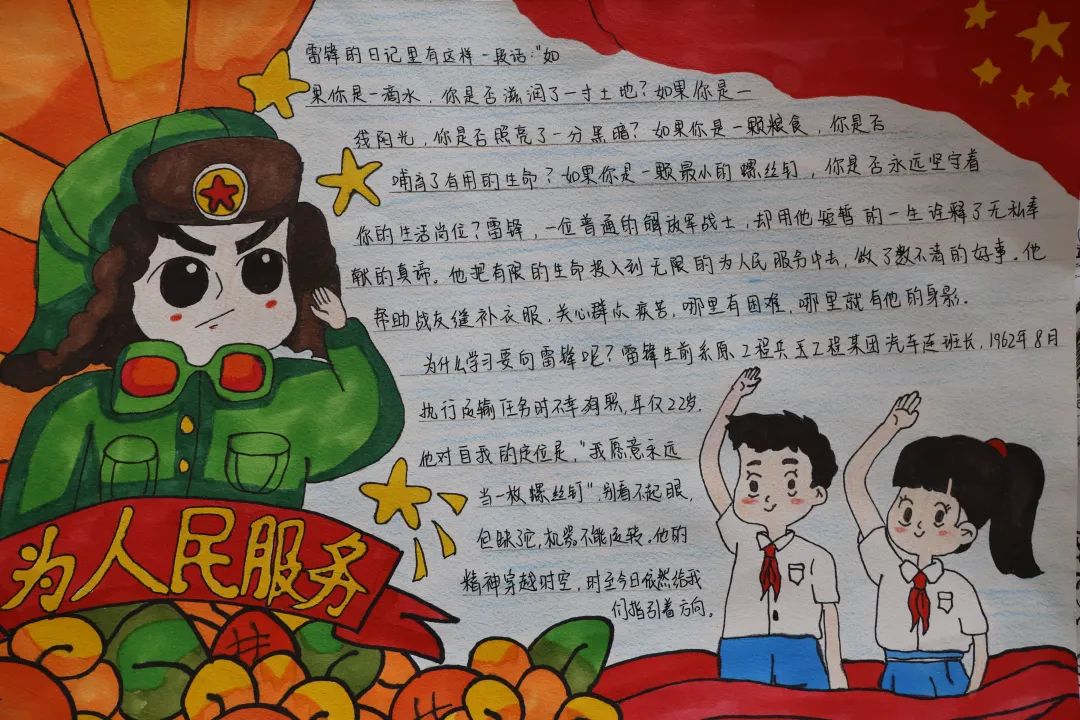 雷锋的日记里有这样一段话:"如
果你是一滴水，你是否滋润了一寸土地?如果你是一
线阳光，你是否照亮了一分黑暗?如果你是一颗粮食，你是否
哺育了有用的生命?如果你是一颗最小的螺丝钉，你是否永远坚守着
你的生活岗位?雷锋，一位普通的解放军战士，却用他短暂的一生诠释了无私奉
献的真谛。他把有限的生命投入到无限的为人民服务中去，做了数不清的好事。他
帮助战友缝补衣服，关心群众疾苦，哪里有困难，哪里就有他的身影。
为什么学习要向雷锋呢?雷锋生前系原工程兵工程某团汽车连班长，1962年8月
执行运输任务时不幸殉职，年仅22岁.
他对自我的定位是，"我愿意永远
当一枚螺丝钉"，别看不起眼，
但缺它，机器不能运转。他的
精神穿越时空，时至今日依然给我
们指引着方向。
为人民服务